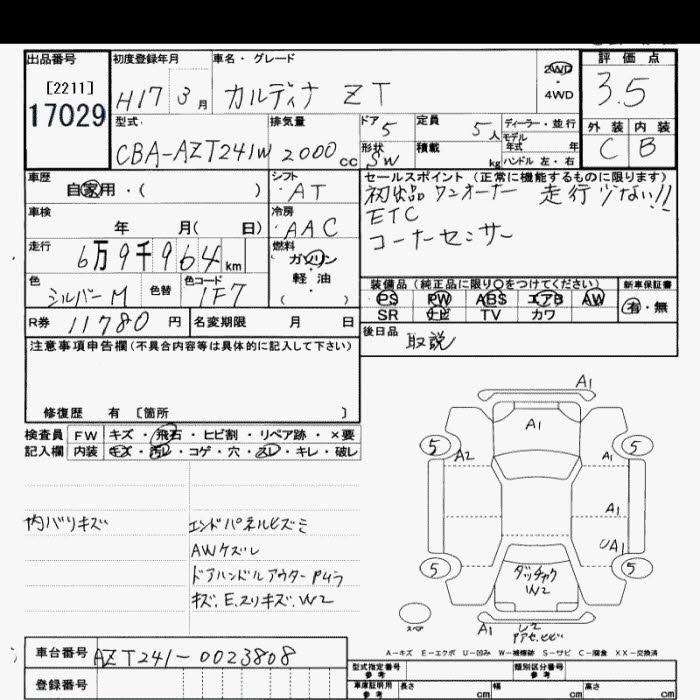 出品番号 初度登録年月 車名・グレード 2WD ・4WD 評価点
[2211] 17029 H17 3月 カルディナ ZT 3.5
型式 排気量 ドア 5 定員 5人 ディーラー・並行 外装 内装
CBA-AZT241W 2000cc 形状 SW 積載 kg モデル年式 年 ハンドル 左・右 C B
車歴 シフト セールスポイント(正常に機能するものに限ります)
自家用・( ) ・AT 初出品 ワンオーナー 走行少ない!!
車検 冷房 ETC
年 月( 日) ・AAC コーナーセンサー
走行 燃料
6万9千964km ガソリン
色 色替 色コード 軽・油 装備品(純正品に限り○をつけてください) 新車保証書
シルバーM 1F7 ( ) PS PW ABS エアB AW 有・無
SR ナビ TV カワ
R券 11780円 名変期限 月 日 後日品 取説
注意事項申告欄(不具合内容等は具体的に記入して下さい)
修復歴 有 [箇所 ]
検査員 FW キズ・飛石・ヒビ割・リペア跡・×要
記入欄 内装 キズ・汚レ・コゲ・穴・スレ・キレ・破レ
A1
A1
5 5
A2 A1
A1
UA1
5 5
内バリキズ エンドパネルヒズミ
AWケズレ
ドアハンドルアウターPムラ
キズ、E、スリキズ、W2
ダッチャク
W2
スペア
A1
A-キズ E-エクボ U-凹み W-補修跡 S-サビ C-腐食 XX-交換済
車台番号 AZT241-0023808
型式指定番号 参考 類別区分番号 参考
登録番号
車庫証明用 参考 長さ cm 幅 cm 高さ cm